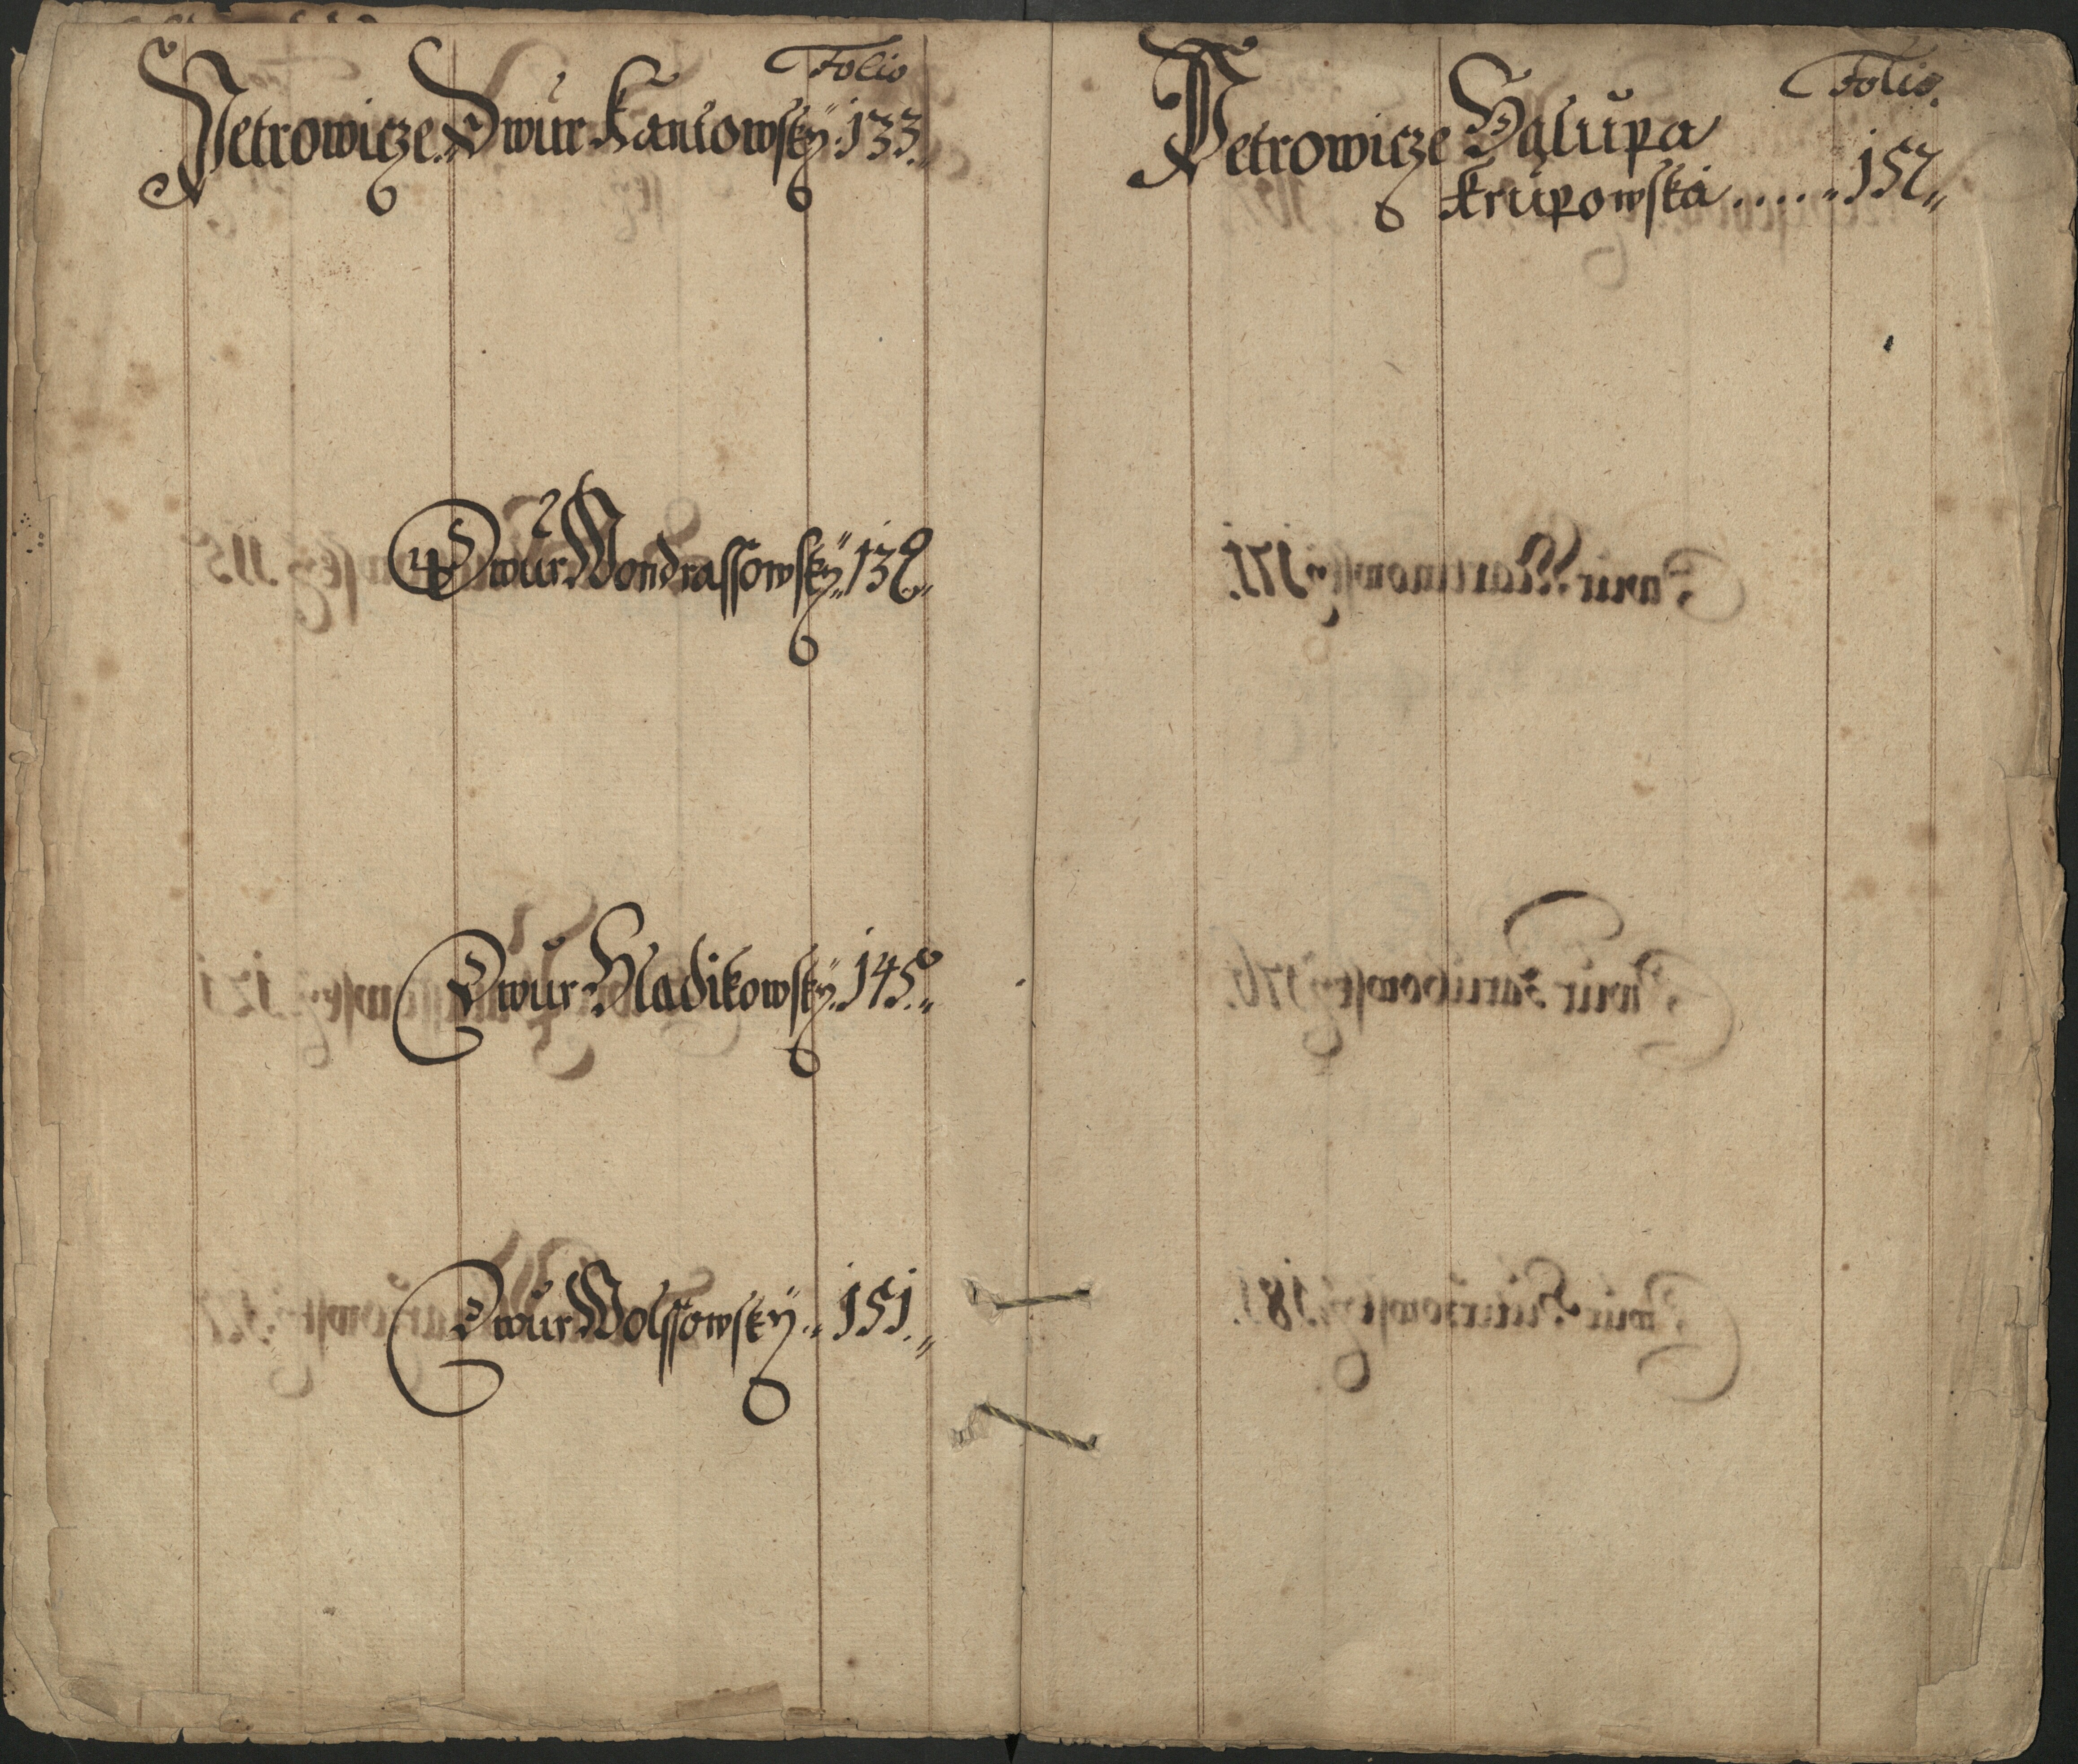 Folio
Petrowicze Dwůr Kantowskÿ 133.
Dwůr Wondrassowskÿ 139.
Dwůr Hladikowskÿ 145.
Dwůr Wolssowskÿ 151.
Folio.
Petrowicze Chalůpa
Krůpowska ..... 157